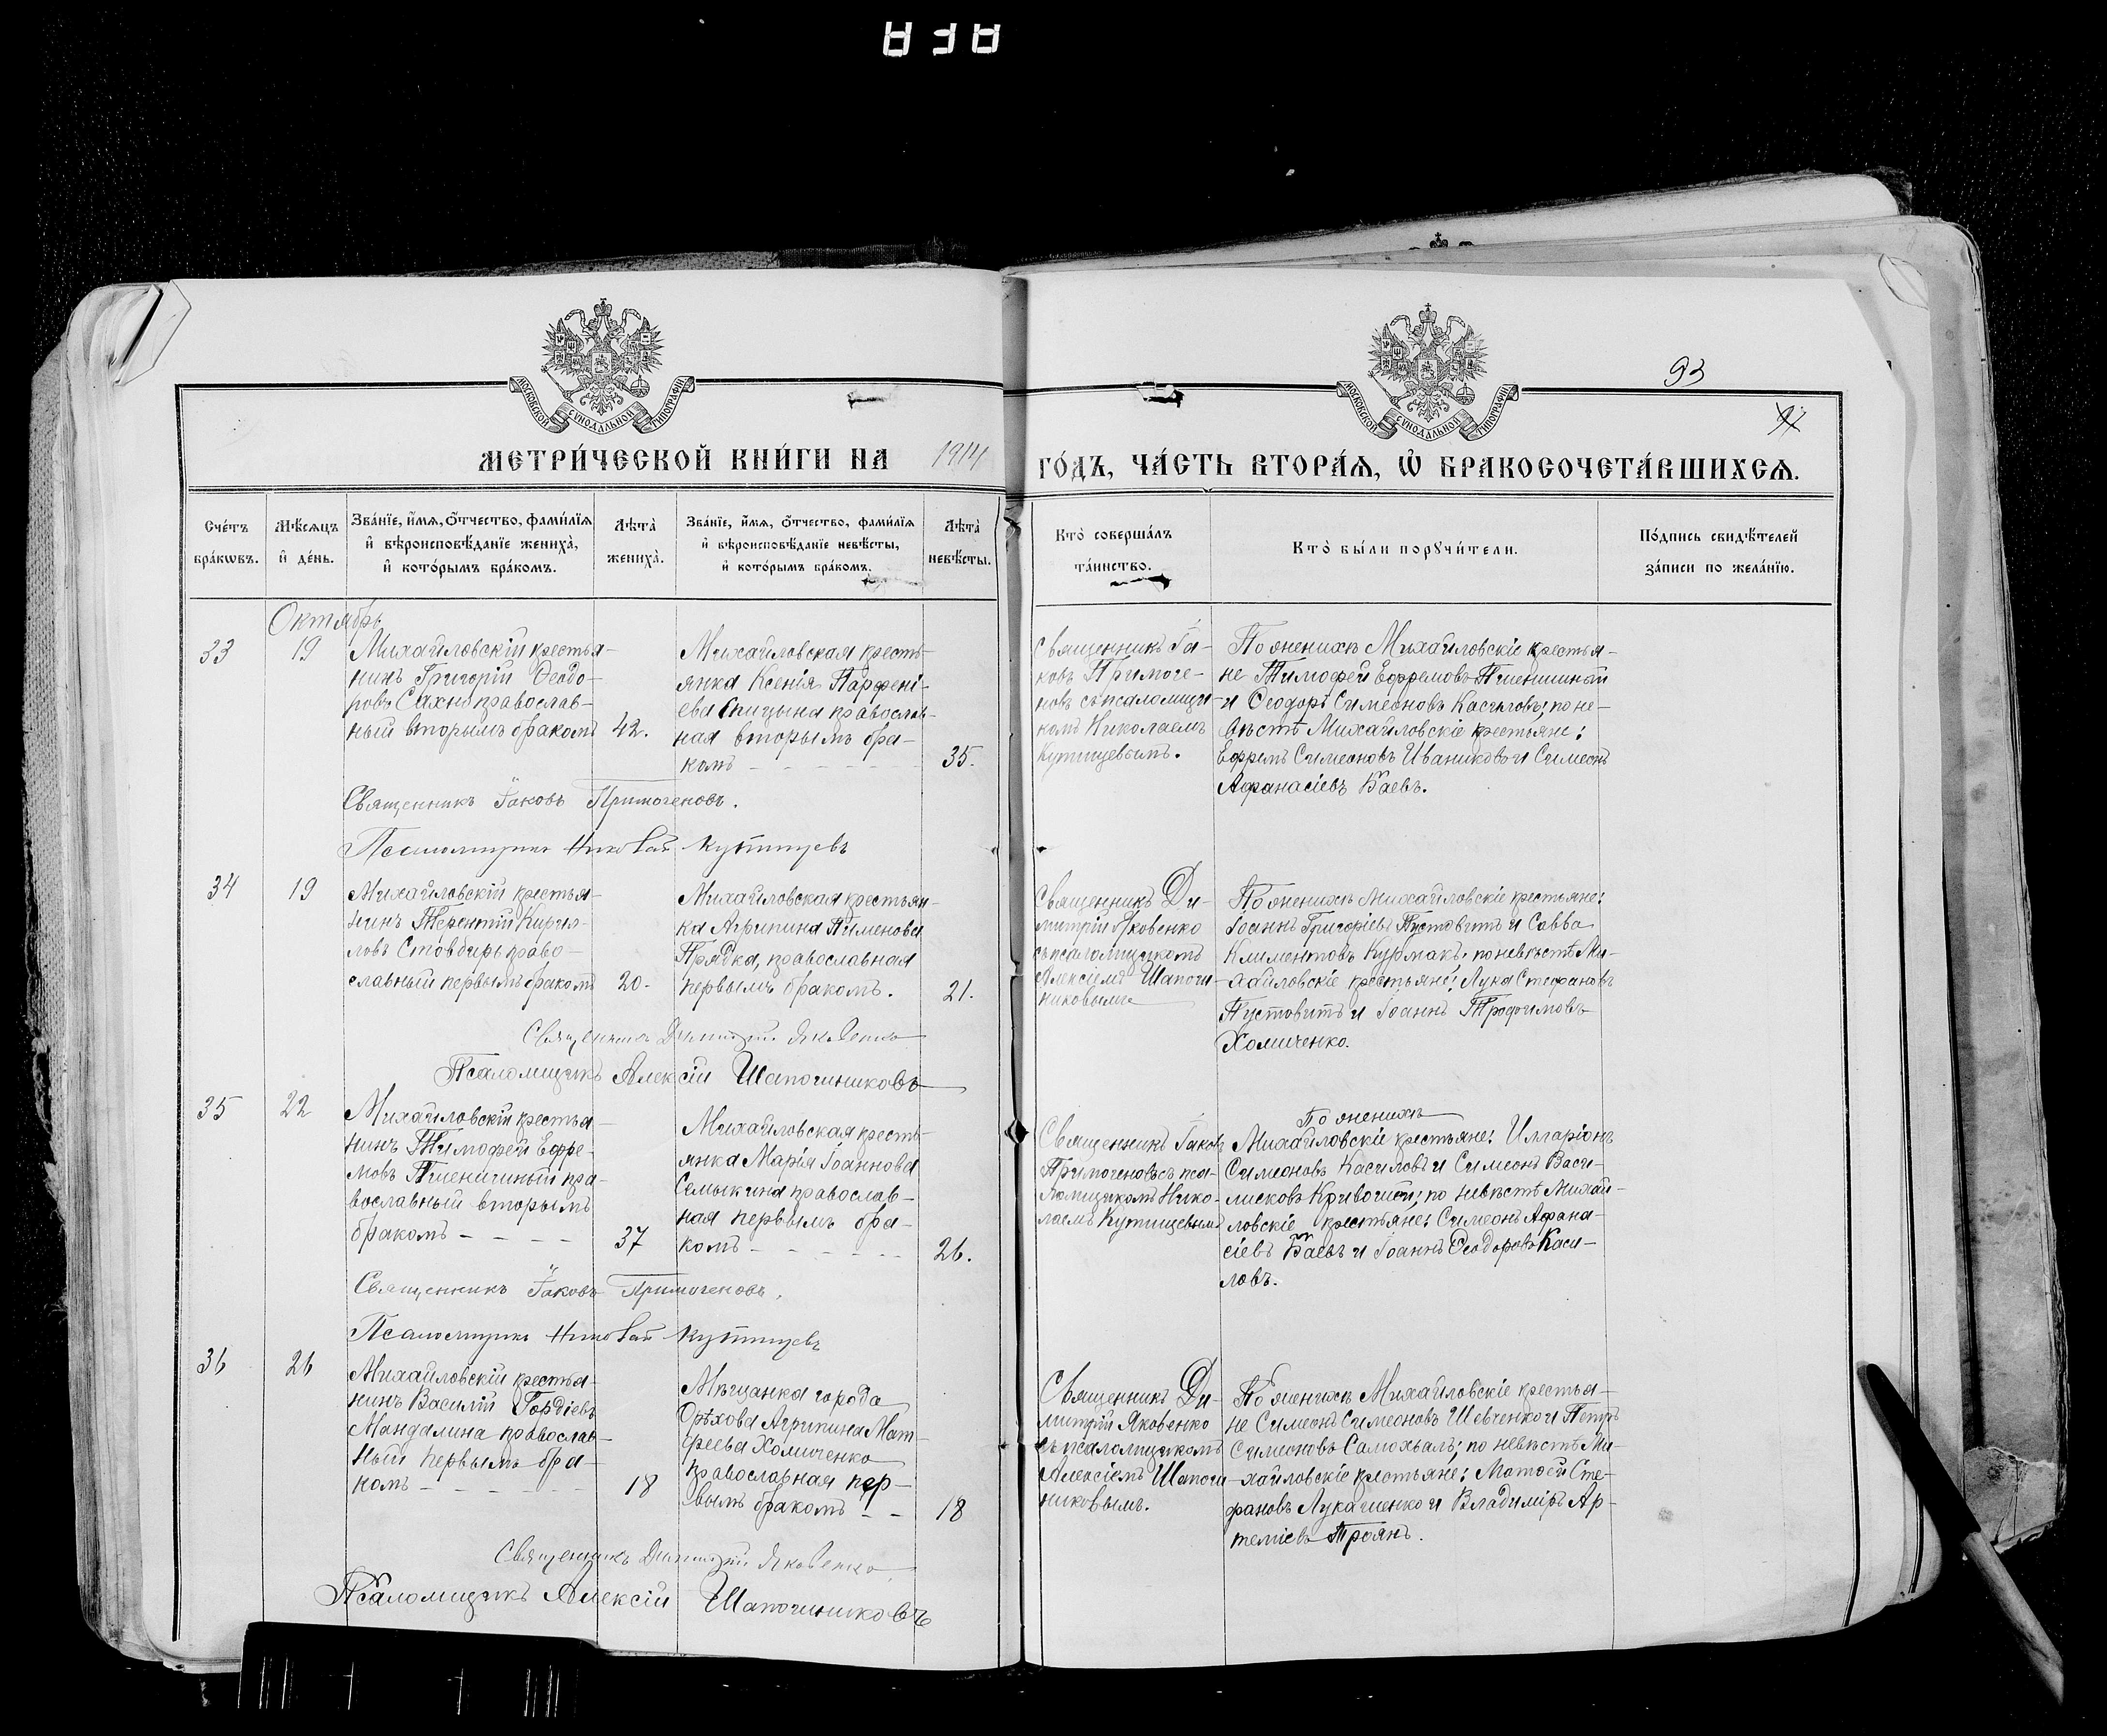 93
МОСКОВСКОЙ СѴНОДАЛЬНОЙ ТИПОГРАФІИ
МОСКОВСКОЙ СѴНОДАЛЬНОЙ ТИПОГРАФІИ
МЕТРИ́ЧЕСКОЙ КНИ́ГИ НА 1914 ГО́ДЪ, ЧА́СТЬ ВТОРА́Ѧ, Ѡ҆ БРАКОСОЧЕТА́ВШИХСѦ.
Сче́тъ бра́кѡвъ.
Мѣ́сяцъ и҆ де́нь.
Зва́нїе, и҆́мѧ, ѻ҆́тчество, фами́лїѧ
и҆ вѣроисповѣ́данїе жениха̀,
и҆ кото́рымъ бра́комъ.
Лѣ́та жениха̀.
Зва́нїе, и҆́мѧ, ѻ҆́тчество, фами́лїѧ
и҆ вѣроисповѣ́данїе невѣ́сты,
и҆ кото́рымъ бра́комъ.
Лѣ́та невѣ́сты.
Кто̀ соверша́лъ
та́инство.
Кто̀ бы́ли порꙋчи́тели.
По́дпись свидѣ́телей
за́писи по жела́нїю.
Октябрь
33
19
Михайловскій крестья-
нинъ Григорій Ѳеодо-
ровъ Сахно православ-
ный вторымъ бракомъ
42.
Михайловская кресть-
янка Ксенія Парфені-
ева Спицына православ-
ная вторымъ бра-
комъ
35.
Священникъ Іа-
ковъ Примоге-
новъ съ псаломщи-
комъ Николаемъ
Кутищевымъ.
По женихѣ Михайловскіе крестья-
не Тимофей Ефремовъ Пшеничный
и Ѳеодоръ Симеоновъ Касиловъ; по не-
вѣстѣ Михайловскіе крестьяне:
Ефремъ Симеоновъ Иваниковъ и Симеонъ
Афанасіевъ Баевъ.
Священникъ Іаковъ Примогеновъ.
Псаломщикъ Николай Кутищевъ
34
19
Михайловскій крестья-
нинъ Терентій Кирил-
ловъ Стовбырь право-
славный первымъ бракомъ
20.
Михайловская крестьян-
ка Агрипина Пименова
Прядка, православная
первымъ бракомъ.
21.
Священникъ Ди-
митрій Яковенко
съ псаломщикомъ
Алексіемъ Шапочн-
никовымъ
По женихѣ Михайловскіе крестьяне:
Іоаннъ Григоріевъ Пустовитъ и Савва
Климентовъ Курмакъ; по невѣстѣ Ми-
хайловскіе крестьяне: Лука Стефановъ
Пустовитъ и Іоаннъ Трофимовъ
Хомиченко.
Священникъ Димитрій Яковенко
Псаломщикъ Алексій Шапочниковъ
35
22
Михайловскій крестья-
нинъ Тимофей Ефре-
мовъ Пшеничный пра-
вославный вторымъ
бракомъ
37
Михайловская кресть-
янка Марія Іоаннова
Семыкина православ-
ная первымъ бра-
комъ
26.
Священникъ Іаковъ
Примогеновъ съ пса-
ломщикомъ Нико-
лаемъ Кутищевымъ
По женихѣ
Михайловскіе крестьяне: Илларіонъ
Симеоновъ Касиловъ и Симеонъ Васи-
лисковъ Кривошей; по невѣстѣ Михай-
ловскіе крестьяне: Симеонъ Афана-
сіевъ Баевъ и Іоаннъ Ѳеодоровъ Каси-
ловъ.
Священникъ Іаковъ Примогеновъ.
Псаломщикъ Николай Кутищевъ
36
26
Михайловскій крестья-
нинъ Василій Гордіевъ
Мандалина православ-
ный первымъ бра-
комъ
18
Мѣщанка города
Орѣхова Агрипина Мат-
феева Хомиченко
православная пер-
вымъ бракомъ
18
Священникъ Ди-
митрій Яковенко
съ псаломщикомъ
Алексіемъ Шапочн-
никовымъ.
По женихѣ Михайловскіе крестья-
не Симеонъ Симеоновъ Шевченко и Петръ
Симеоновъ Самохвалъ; по невѣстѣ Ми-
хайловскіе крестьяне: Матѳей Сте-
фановъ Лукашенко и Владиміръ Ар-
теміевъ Троянъ.
Священникъ Димитрій Яковенко
Псаломщикъ Алексій Шапочниковъ